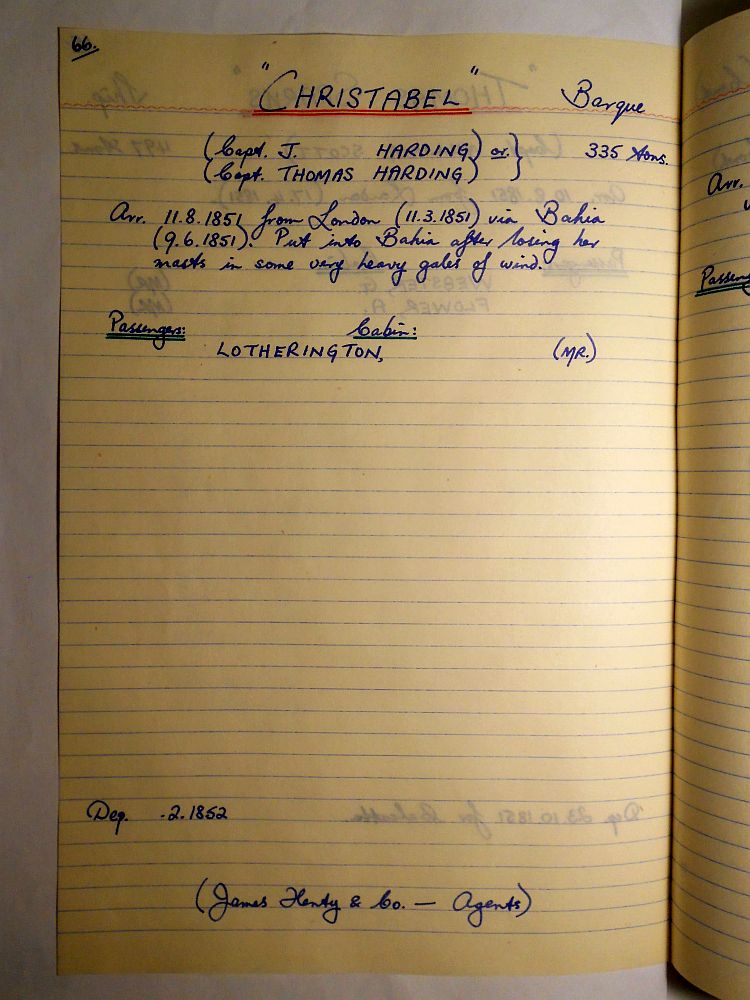 66.
"CHRISTABEL" Barque
(Capt. J. HARDING) or } 335 tons.
(Capt. THOMAS HARDING)
Arr. 11.8.1851 from London (11.3.1851) via Bahia
(9.6.1851). Put into Bahia after losing her
masts in some very heavy gales of wind.
Passengers: Cabin:
LOTHERINGTON, (MR.)
Dep. .2.1852
(James Henty & Co. — Agents)
Arr.
Passeng